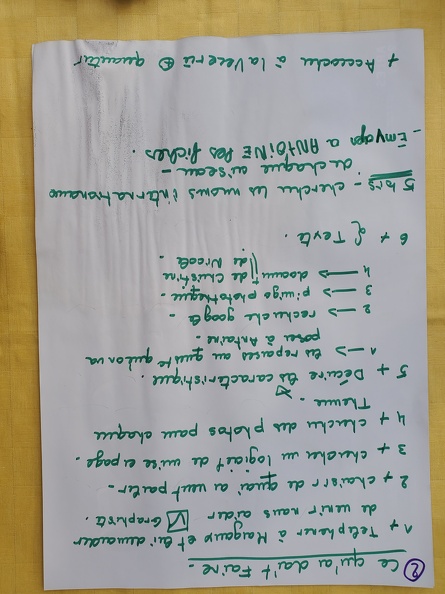 ② Ce qu'on doit Faire.
1 + Téléphoner à Margaux et lui demander
de venir nous aider Graphiste.
2 + choisir de quoi on veut parler -
3 + chercher un logiciel de mise en page.
4 + chercher des photos pour chaque
Thème.
5 + Décrire les caractéristique.
1 → les reponses au quiste qu'on va
poser à Antoine -
2 → recherche google -
3 → piwigo photothèque -
4 → docum de Christine
de Nicole -
6 + Texte.
5 bis - chercher les noms internationaux
de chaque oiseau -
- Envoyer a ANTOINE les fiches.
+ Accroche à la ⊕ quantier